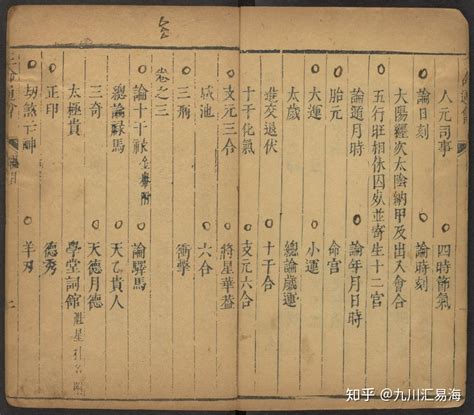 人元司事　四時節氣
論日刻　論時刻
大陽躔次太陰納甲及出入會合
五行旺相休囚死並寄生十二宮
論遁月時　論年月日時
胎元　命宮
大運　小運
太歲　總論歲運
進交退伏　十干合
十干化氣　支元六合
支元三合　將星華蓋
咸池　六合
三刑　衝擊
卷之三
論十干祿金轝附　論驛馬
總論祿馬　天乙貴人
三奇　天德月德
太極貴　學堂詞館魁星科名附
正印　德秀
劫煞亡神　羊刃
知乎 @九川汇易海